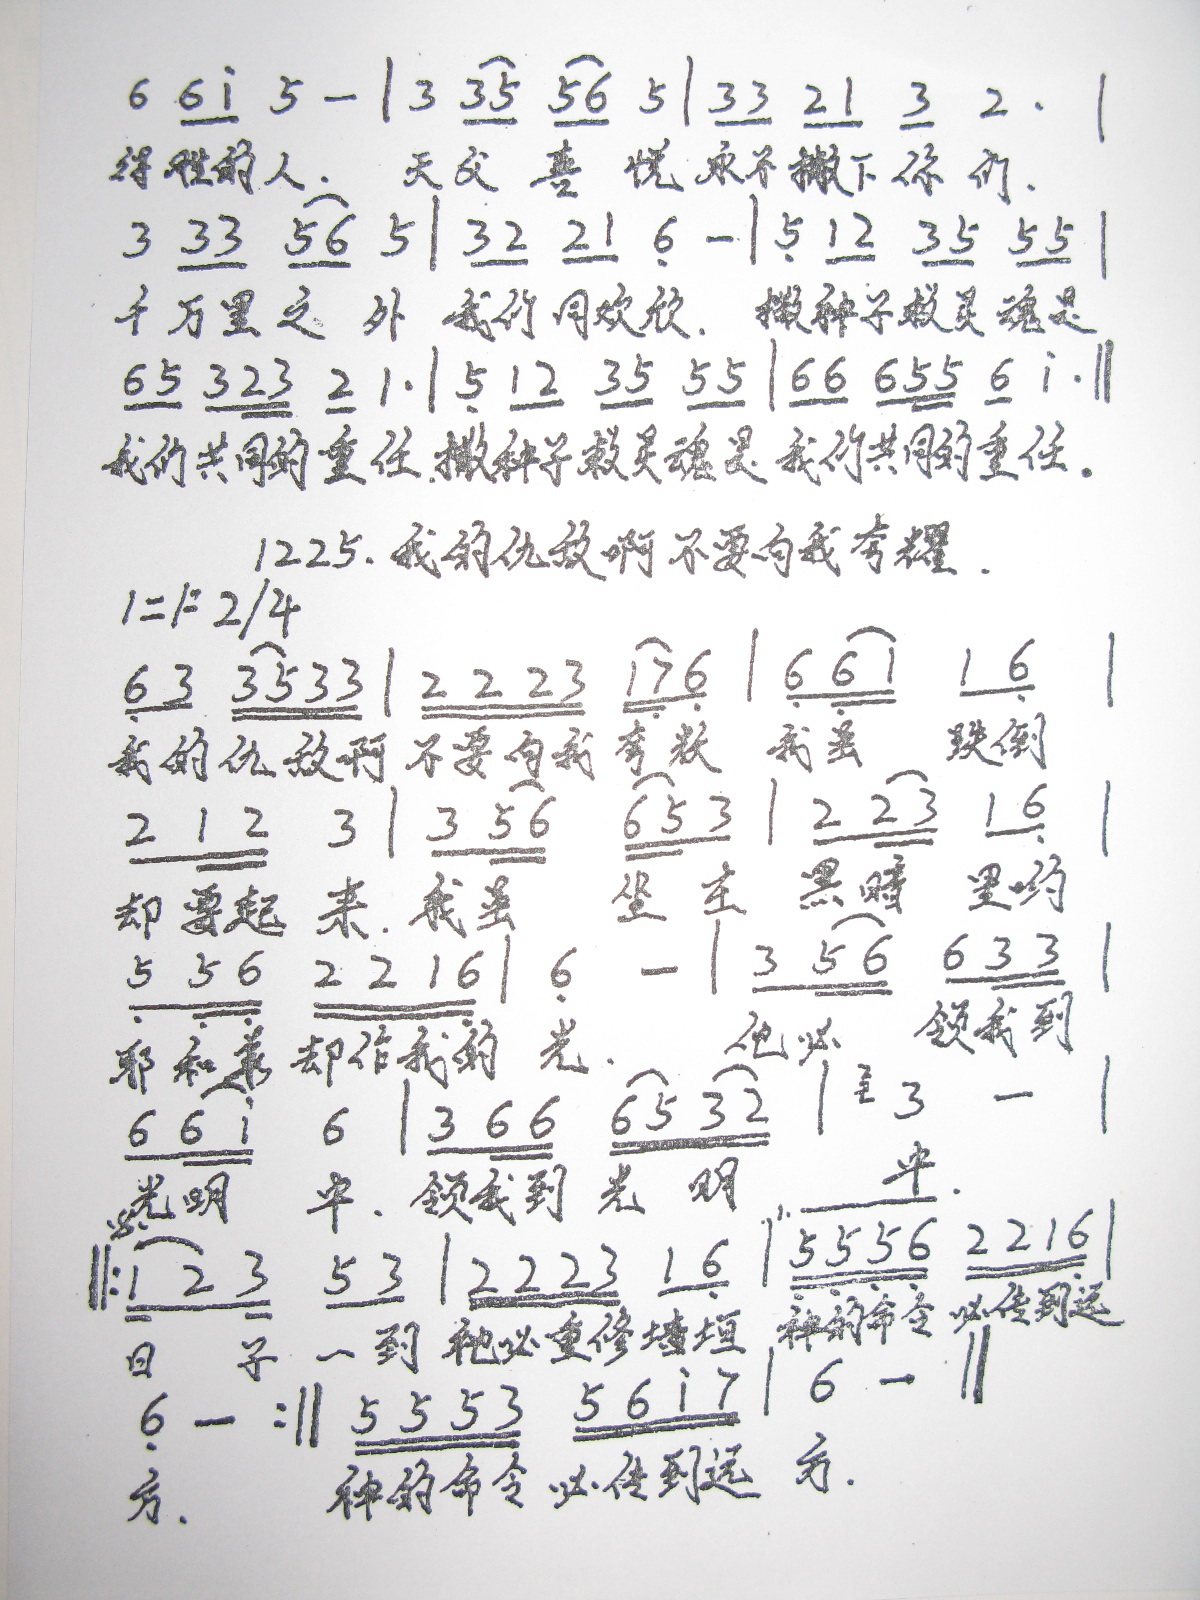 6 6i 5 - | 3 35 56 5 | 33 21 3 2 · |
得胜的人. 天父喜悦永不撇下你们.
3 33 56 5 | 32 21 6 - | 5 12 35 55 |
千万里之外我们同欢欣. 撒种子救灵魂是
65 323 2 1· | 5 12 35 55 | 66 655 6 i· ‖
我们共同的重任.撒种子救灵魂是我们共同的重任。
1225. 我的仇敌啊不要向我夸耀.
1=F 2/4
63 3533 | 2223 176 | 661 16 |
我的仇敌啊不要向我夸耀 我虽 跌倒
212 3 | 356 653 | 223 16 |
却要起来. 我虽 坐在 黑暗 里哟
556 2216 | 6 - | 356 633 |
耶和华却作我的光. 他必 领我到
66i 6 | 366 6532 | 3 - |
光明 中. 领我到光明 中.
‖: 123 53 | 2223 16 | 5556 2216 |
日子一到祂必重修墙垣 神的命令必传到远
6 - :‖ 5553 56i7 | 6 - ‖
方. 神的命令必传到远方.